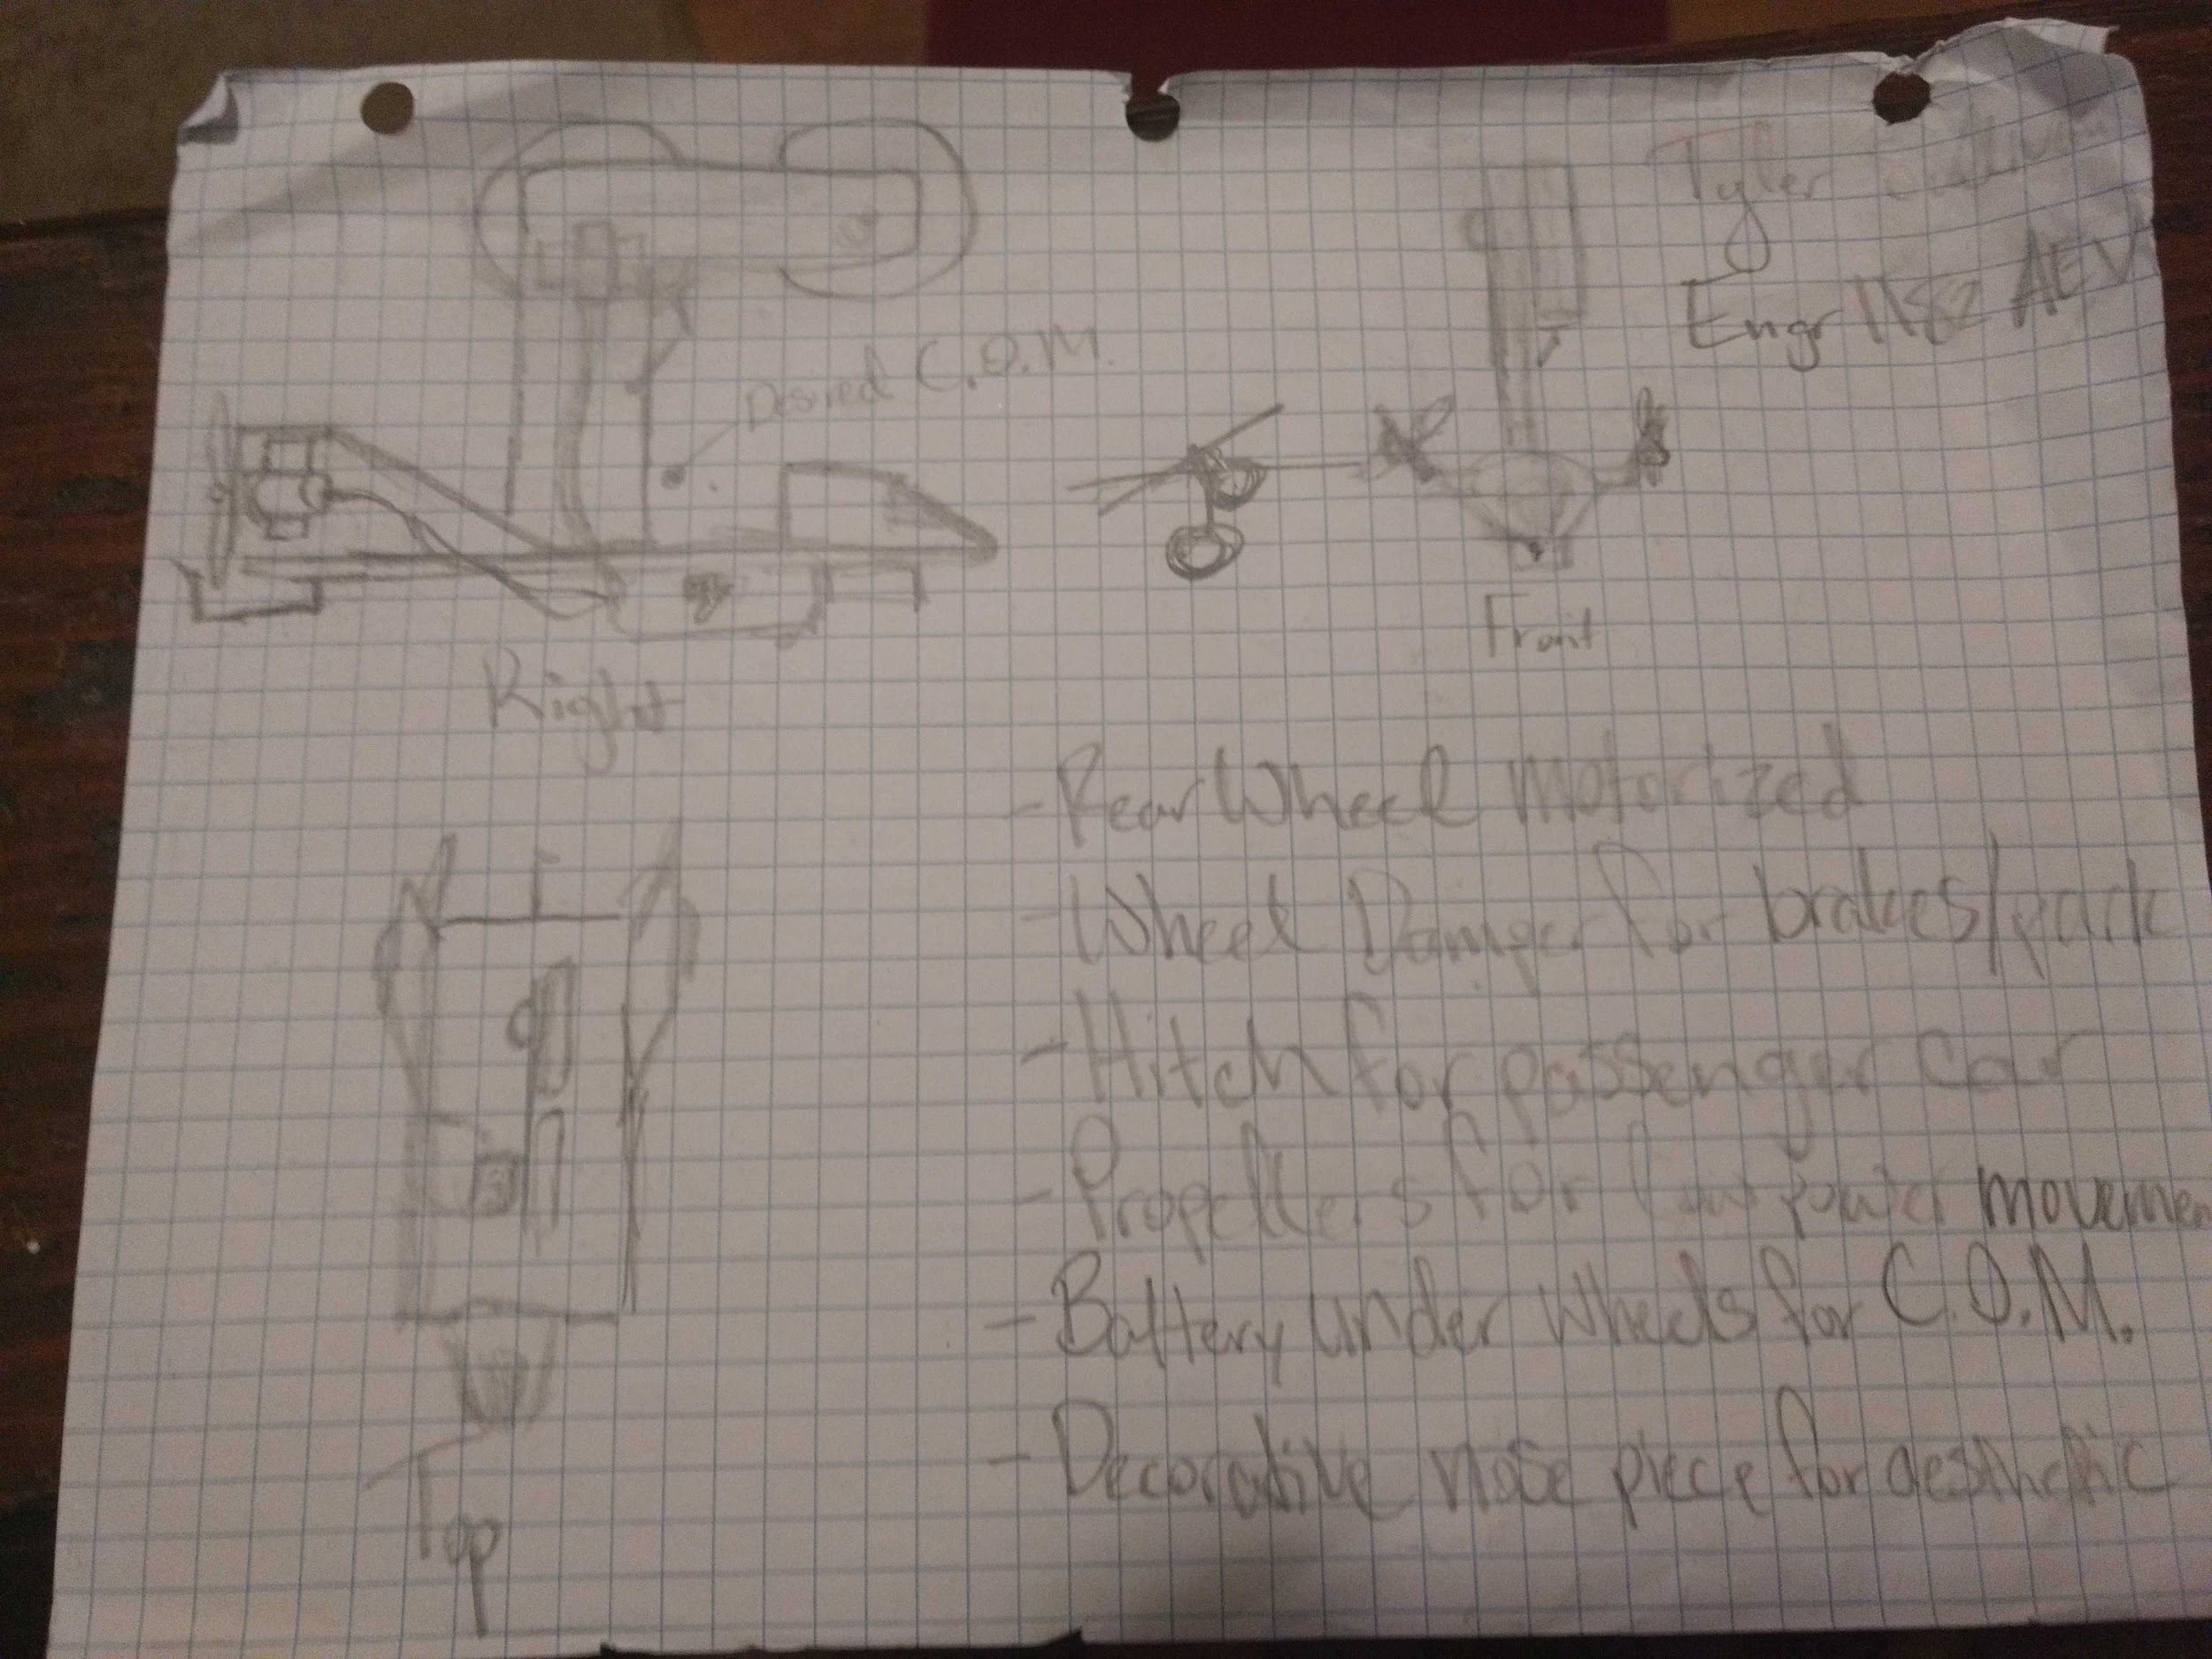 Tyler
Engr 1182 AEV
Desired C.O.M.
Front
Right
- Rear Wheel motorized
- Wheel Damper for brakes/park
- Hitch for passenger car
- Propellers for low power movemen
- Battery under wheels for C.O.M.
- Decorative nose piece for aesthetic
Top